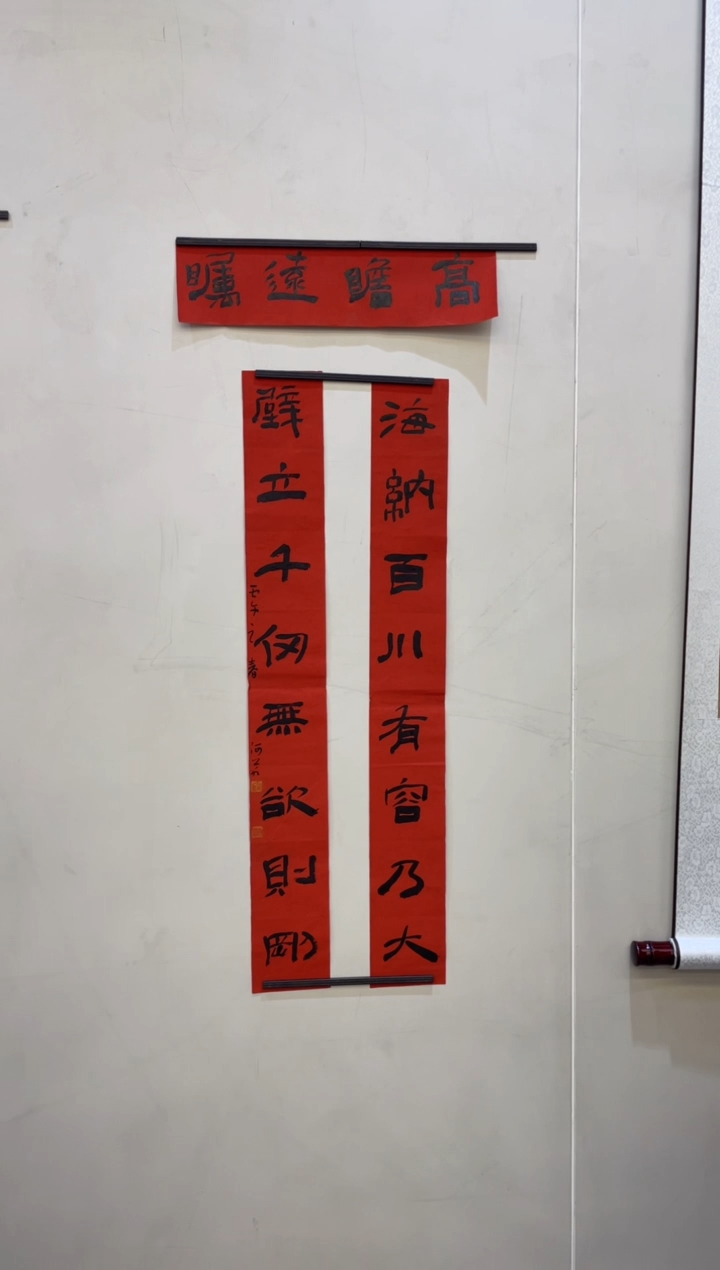 高瞻遠矚
海納百川有容乃大
壁立千仞無欲則剛
丙午之春